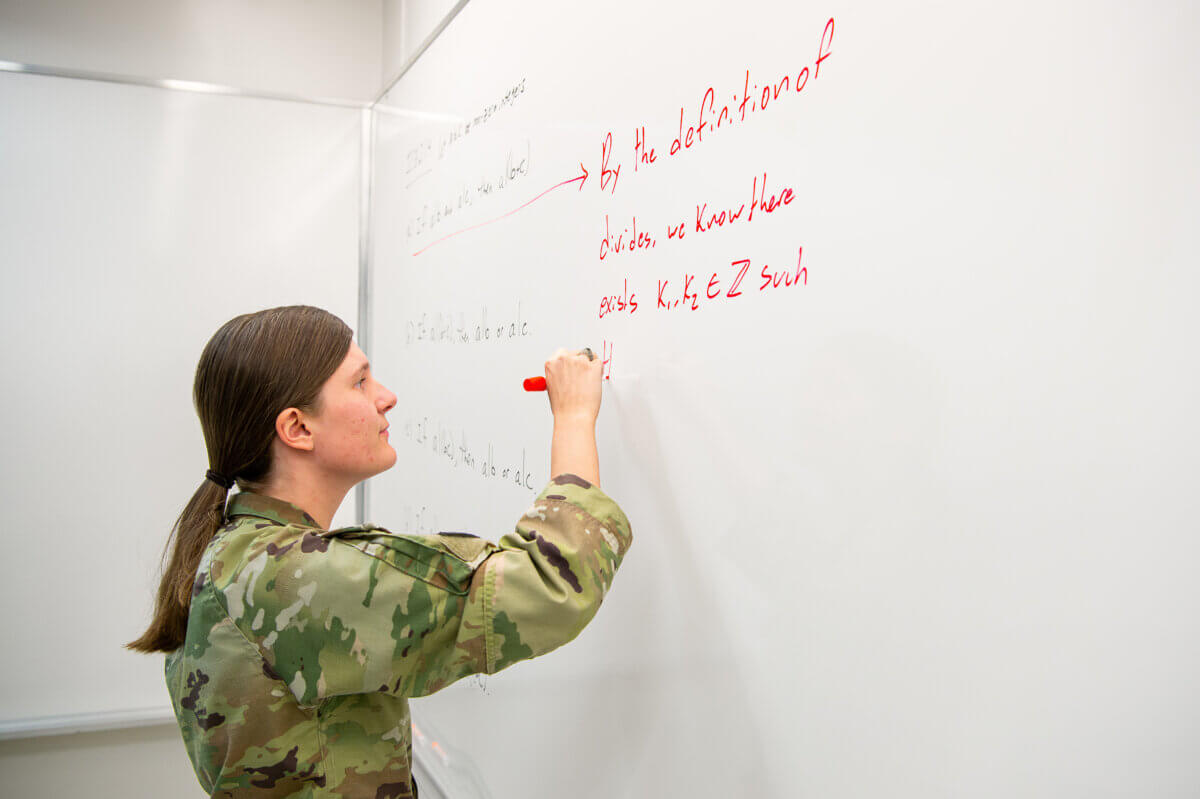 Let a,b,c be non-zero integers
a) If a|b and a|c, then a|(b+c)
b) If a|(b+c), then a|b or a|c.
c) If a|(bc), then a|b or a|c.
If
By the definition of
divides, we know there
exists K₁, K₂ ∈ ℤ such